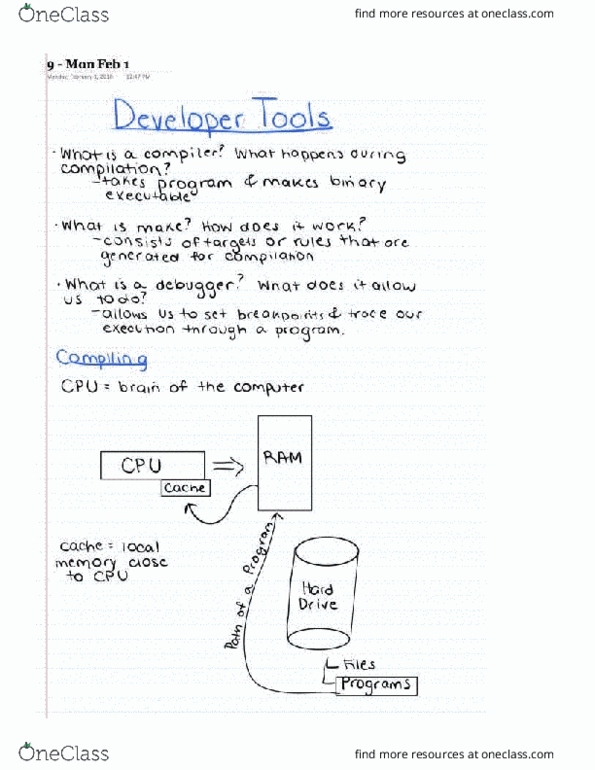 OneClass
find more resources at oneclass.com
9 - Mon Feb 1
Monday, February 1, 2016 12:47 PM
Developer Tools
· What is a compiler? What happens during
compilation?
- takes program & makes binary
executable
· What is make? How does it work?
- consists of targets or rules that are
generated for compilation
· What is a debugger? What does it allow
us to do?
- allows us to set breakpoints & trace our
execution through a program.
Compiling
CPU = brain of the computer
CPU
Cache
RAM
cache = local
memory close
to CPU
Path of a Program
Hard
Drive
Files
Programs
OneClass
find more resources at oneclass.com